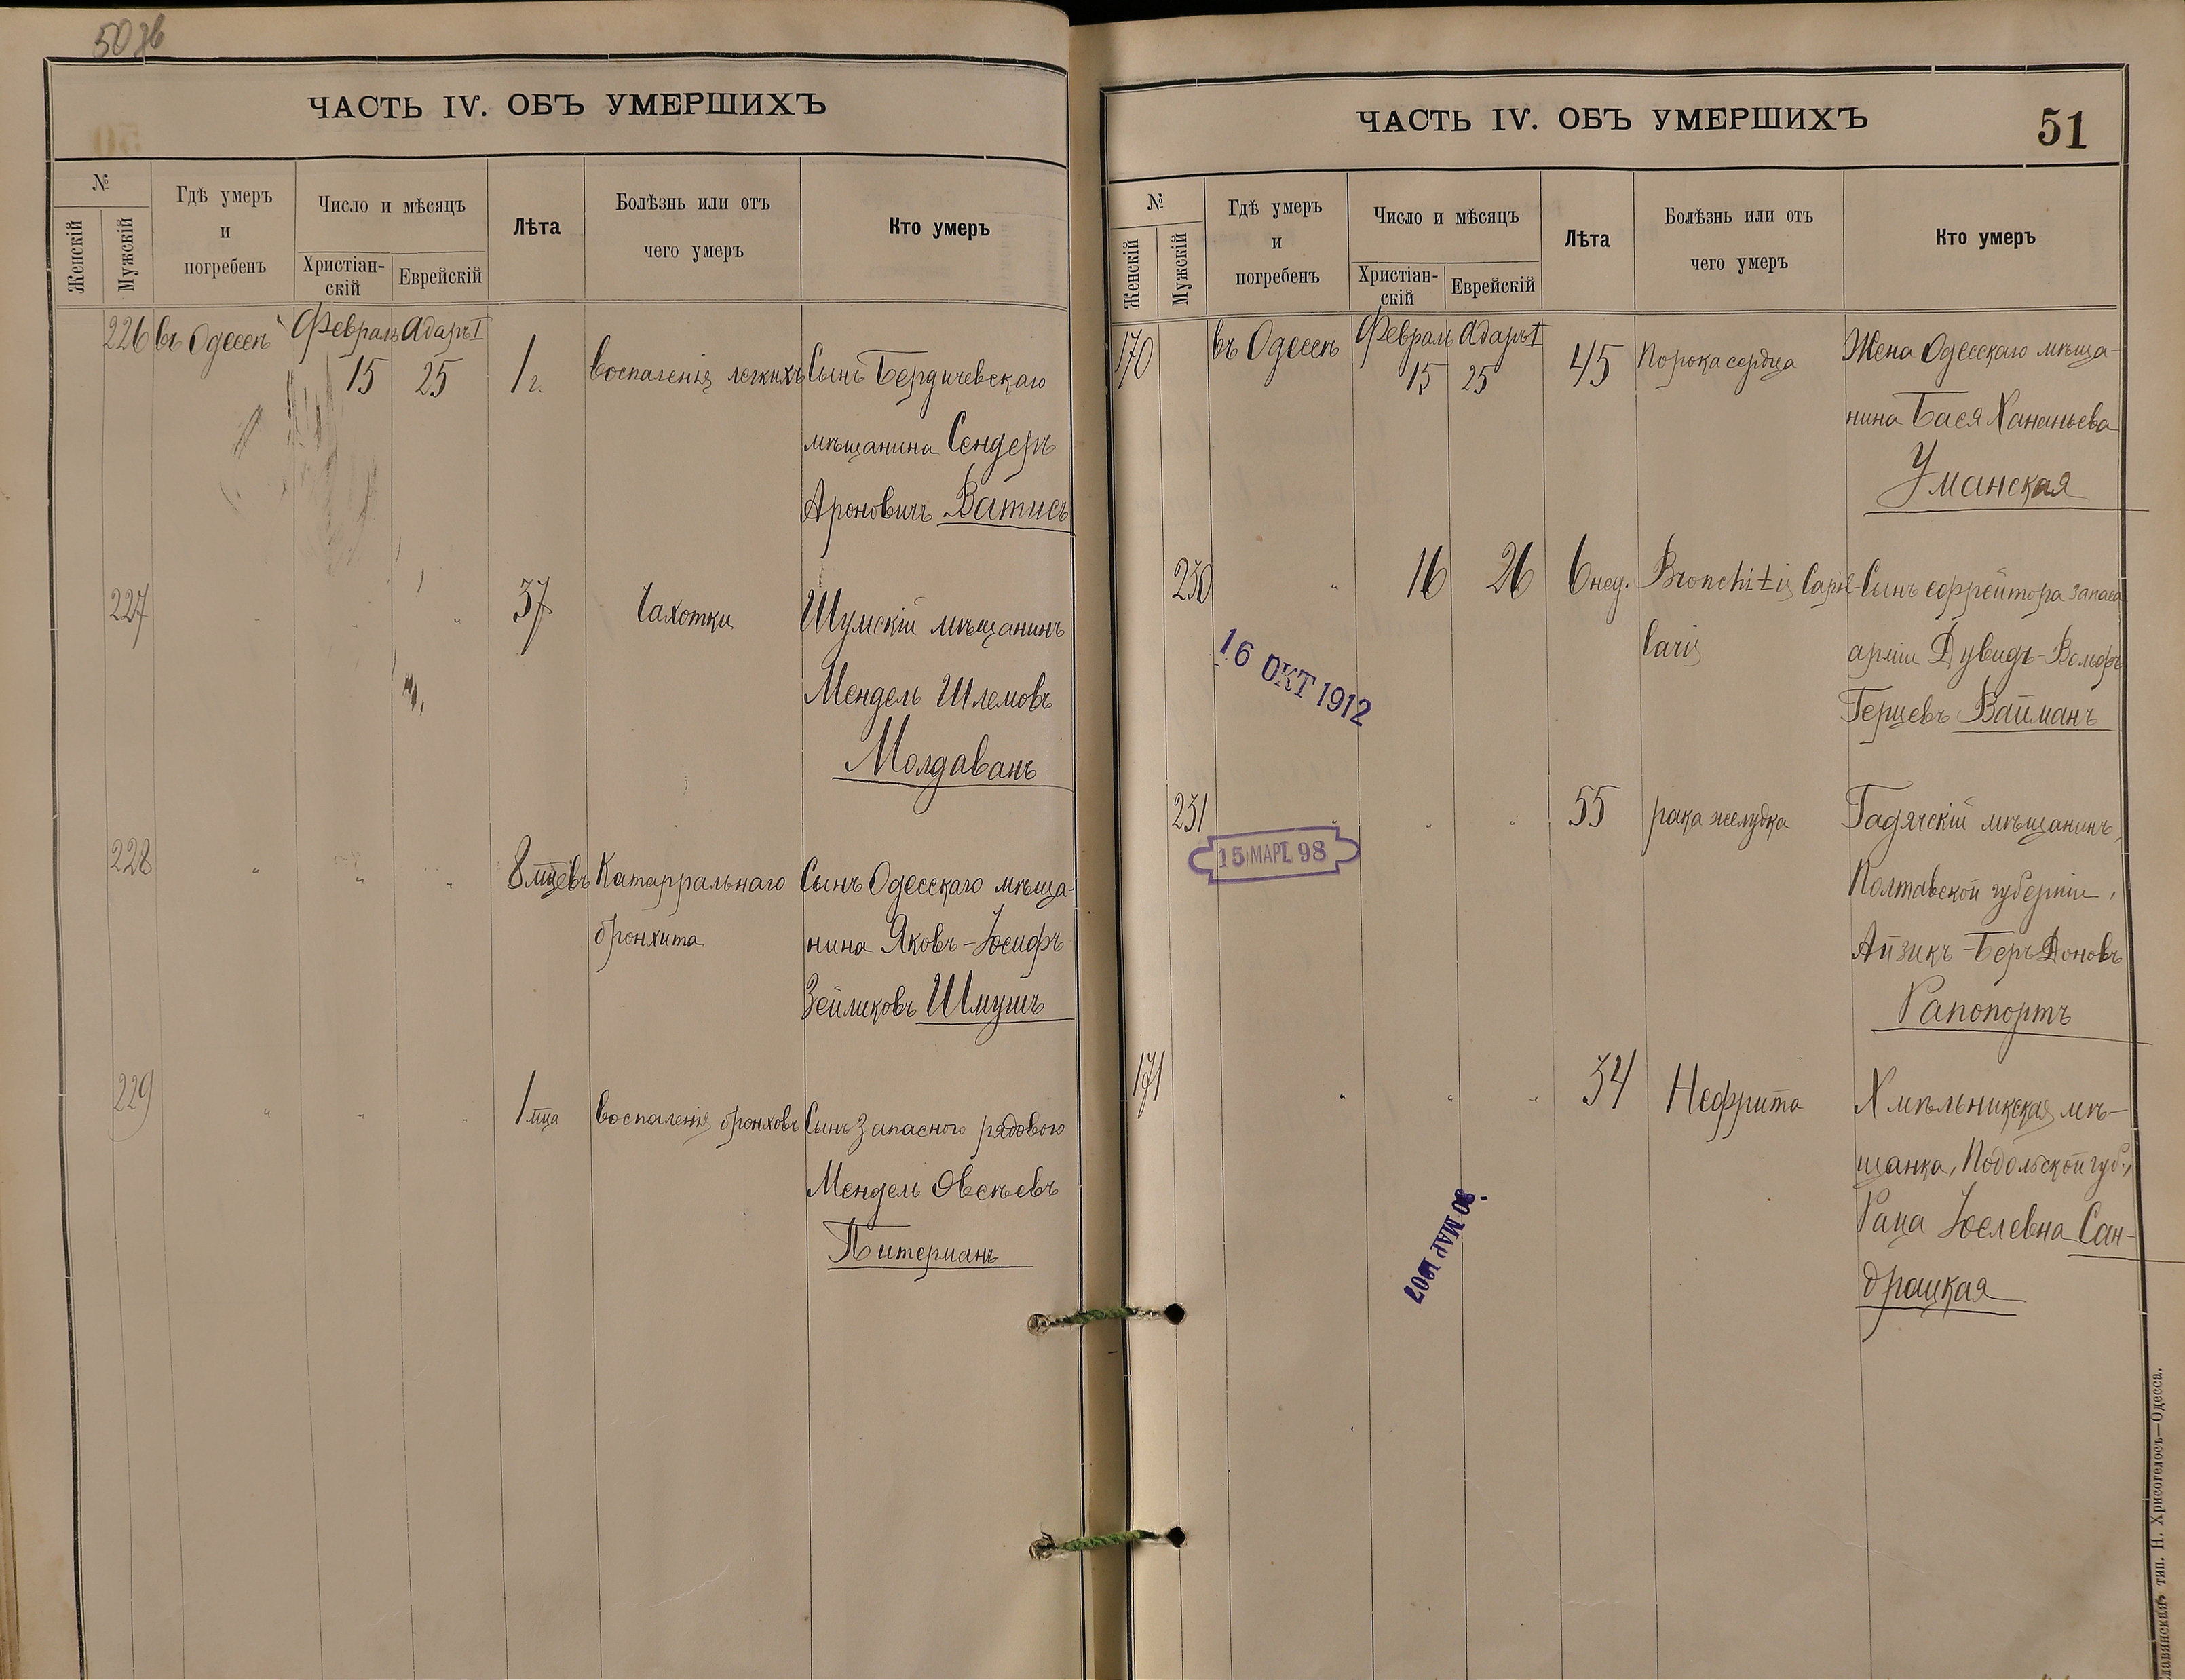 50 зв
ЧАСТЬ IV. ОБЪ УМЕРШИХЪ
№
Женскій
Мужскій
Гдѣ умеръ
и
погребенъ
Число и мѣсяцъ
Христіан-
скій
Еврейскій
Лѣта
Болѣзнь или отъ
чего умеръ
Кто умеръ
226 въ Одессѣ Февраль Адаръ I
15 25 1 г. воспаленія легкихъ Сынъ Бердичевскаго
мѣщанина Сендеръ
Ароновичъ Ватисъ
227 " " 37 Чахотки Шумскій мѣщанинъ
Мендель Шлемовъ
Молдаванъ
228 " " " 8 мцевъ Катарральнаго Сынъ Одесскаго мѣща-
бронхита нина Яковъ-Іосифъ
Зейликовъ Шмушъ
229 " " " 1 мца воспаленія бронховъ Сынъ запаснаго рядового
Мендель Овсѣевъ
Питерманъ
ЧАСТЬ IV. ОБЪ УМЕРШИХЪ
51
№
Женскій
Мужскій
Гдѣ умеръ
и
погребенъ
Число и мѣсяцъ
Христіан-
скій
Еврейскій
Лѣта
Болѣзнь или отъ
чего умеръ
Кто умеръ
170 въ Одессѣ Февраль Адаръ I
15 25 45 Порока сердца Жена Одесскаго мѣща-
нина Бася Хананьева
Уманская
230 " 16 26 6 нед. Bronchitis Capil- Сынъ ефрейтора запаса
laris арміи Дувидъ-Вольфъ
Герцевъ Вайманъ
16 ОКТ 1912
231 " " " 55 рака желудка Гадячскій мѣщанинъ,
15 МАРТ. 98
Полтавской губерніи,
Айзикъ-Беръ Доновъ
Рапопортъ
171 " " " 34 Нефрита Хмѣльникская мѣ-
щанка, Подольской губ.,
Раца Іослевна Сан-
драцкая
30 МАР 1907
Славянская тип. Н. Хрисогелосъ—Одесса.